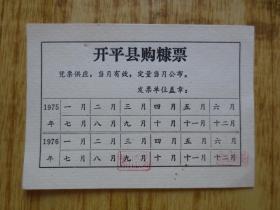 开平县购糠票
凭票供应，当月有效，定量当月公布。
发票单位盖章：
1975 一月 二月 三月 四月 五月 六月
年 七月 八月 九月 十月 十一月 十二月
1976 一月 二月 三月 四月 五月 六月
年 七月 八月 九月 十月 十一月 十二月